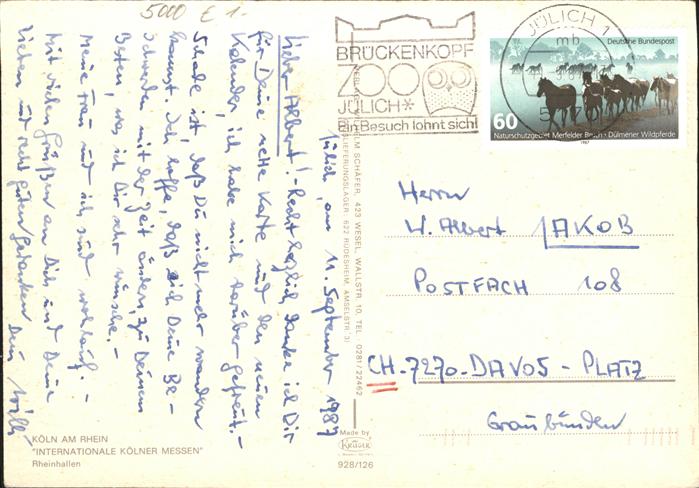 5000 £ 1.-
BRÜCKENKOPF
ZOO
JÜLICH*
Ein Besuch lohnt sich!
JÜLICH 1
mb
Deutsche Bundespost
60
Naturschutzgebiet Merfelder Bruch · Dülmener Wildpferde
1987
Jülich, am 11. September 1987
Lieber Albert! - Recht herzlich danke ich Dir
für Deine nette Karte und den neuen
Kalender, ich habe mich darüber gefreut. -
Schade ist, daß Du nicht mehr wandern
kannst. Ich hoffe, daß sich Deine Be-
schwerden mit der Zeit ändern, zu Deinem
Besten, was ich Dir sehr wünsche. -
Meine Frau und ich sind wohlauf. -
Mit vielen Grüßen an Dich und Deine
Lieben und recht guten Gedanken Dein Willi
SCHÄFER, 423 WESEL, WALLSTR. 10, TEL. 0281/22462
AUSLIEFERUNGSLAGER: 622 RÜDESHEIM, AMSELSTR. 31
Herrn
W. Albert JAKOB
POSTFACH 108
CH-7270-DAVOS-PLATZ
Graubünden
KÖLN AM RHEIN
"INTERNATIONALE KÖLNER MESSEN"
Rheinhallen
Made by
KRÜGER
928/126